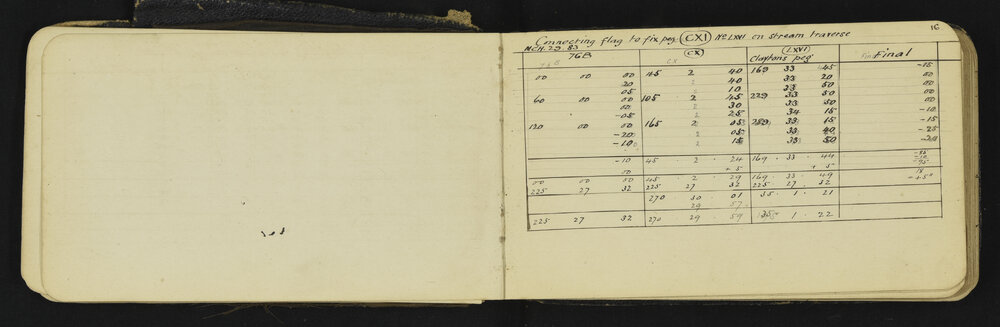 16
Connecting flag to fix peg (CXI) No LXXI on stream traverse
MCH. 29. 83
76B (CX) (LXVI)
76B CX Claytons peg Final
00 00 00 45 2 40 169 33 45 -15
20 2 40 33 20 00
05 2 10 33 50 00
60 00 00 105 2 45 229 33 50 00
00 2 30 33 50 00
-05 2 25 34 15 -15
120 00 00 165 2 05 289 33 15 -15
-20 2 05 33 40 -25
-10 2 15 33 50
-10 45 2 24 169 33 44
00 + 5 + 5
00 00 00 45 2 29 169 33 49
225 27 32 225 27 32 225 27 32
270 30 01 35 1 21
29 57
225 27 32 270 29 59 35 1 22